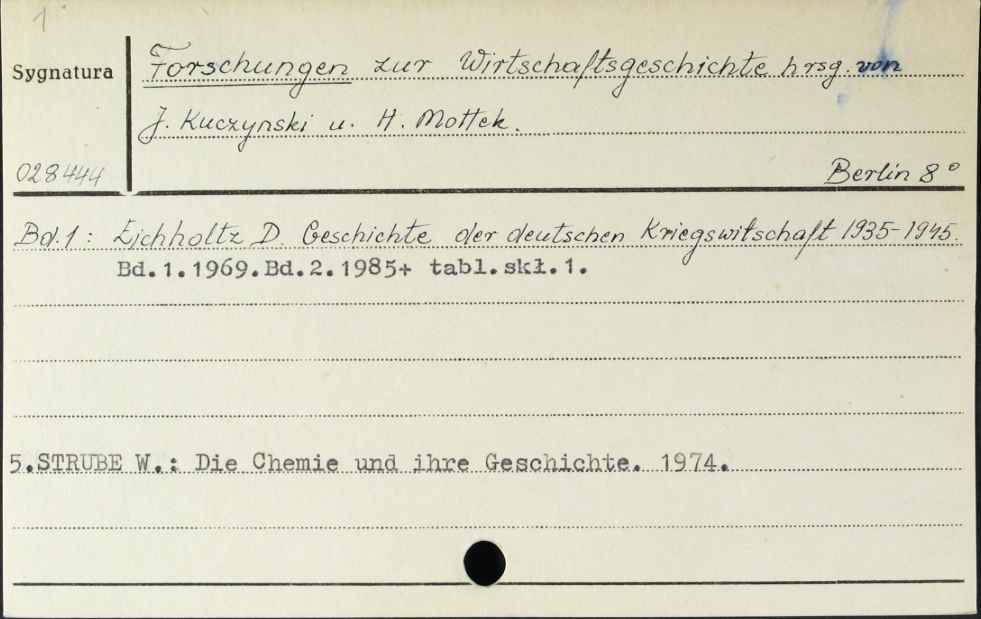 1
Sygnatura
Forschungen zur Wirtschaftsgeschichte hrsg. von
J. Kuczynski u. H. Mottek.
028444
Berlin 8°
Bd. 1: Eichholtz D. Geschichte der deutschen Kriegswitschaft 1935-1945.
Bd.1.1969.Bd.2.1985+ tabl.skł.1.
5.STRUBE W.: Die Chemie und ihre Geschichte. 1974.